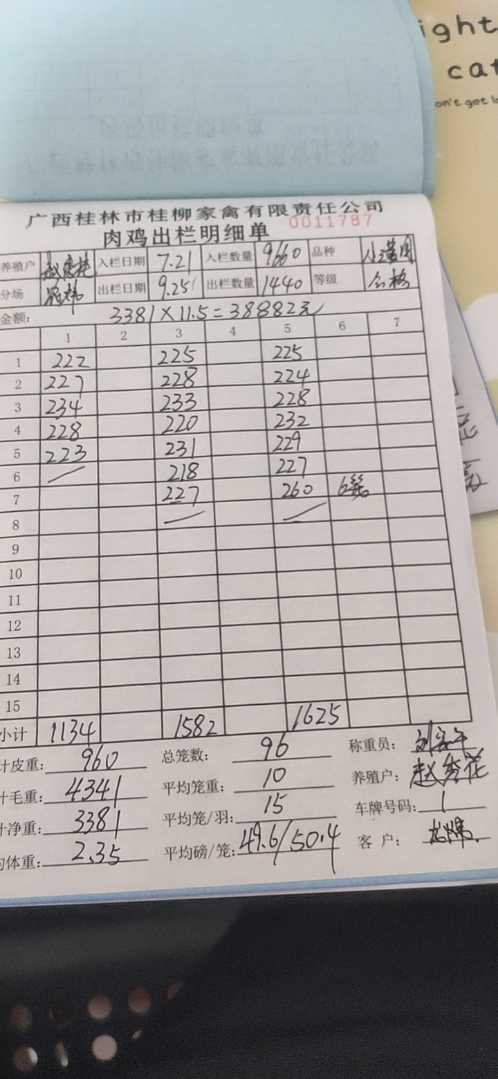 ight
cat
on't got
广西桂林市桂柳家禽有限责任公司
肉鸡出栏明细单
0011787
养殖户 入栏日期 7.21 入栏数量 9660 品种
分场 出栏日期 9.25 出栏数量 1440 等级 合格
金额: 3381×11.5=38882元
1 2 3 4 5 6 7
1 222 225 225
2 227 228 224
3 234 233 228
4 228 220 232
5 223 231 229
6 218 227
7 227 260 6笼
8
9
10
11
12
13
14
15
小计 1134 1582 1625
计皮重: 960 总笼数: 96 称重员:
计毛重: 4341 平均笼重: 10 养殖户: 赵秀花
计净重: 3381 平均笼/羽: 15 车牌号码: 1
均体重: 2.35 平均磅/笼: 49.6/50.4 客 户: